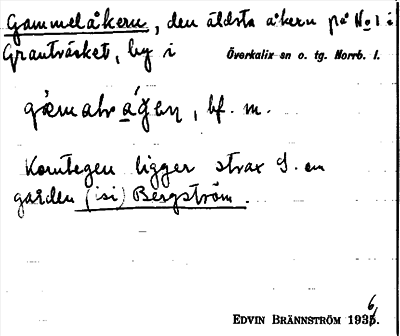 Gammelåkern, den äldsta åkern på No 1 i
Granträsket, by i Överkalix sn o. tg. Norrb. l.
bf. m.
Korntegen ligger strax S. om
gården (isi) Bergström.
EDVIN BRÄNNSTRÖM 1936.